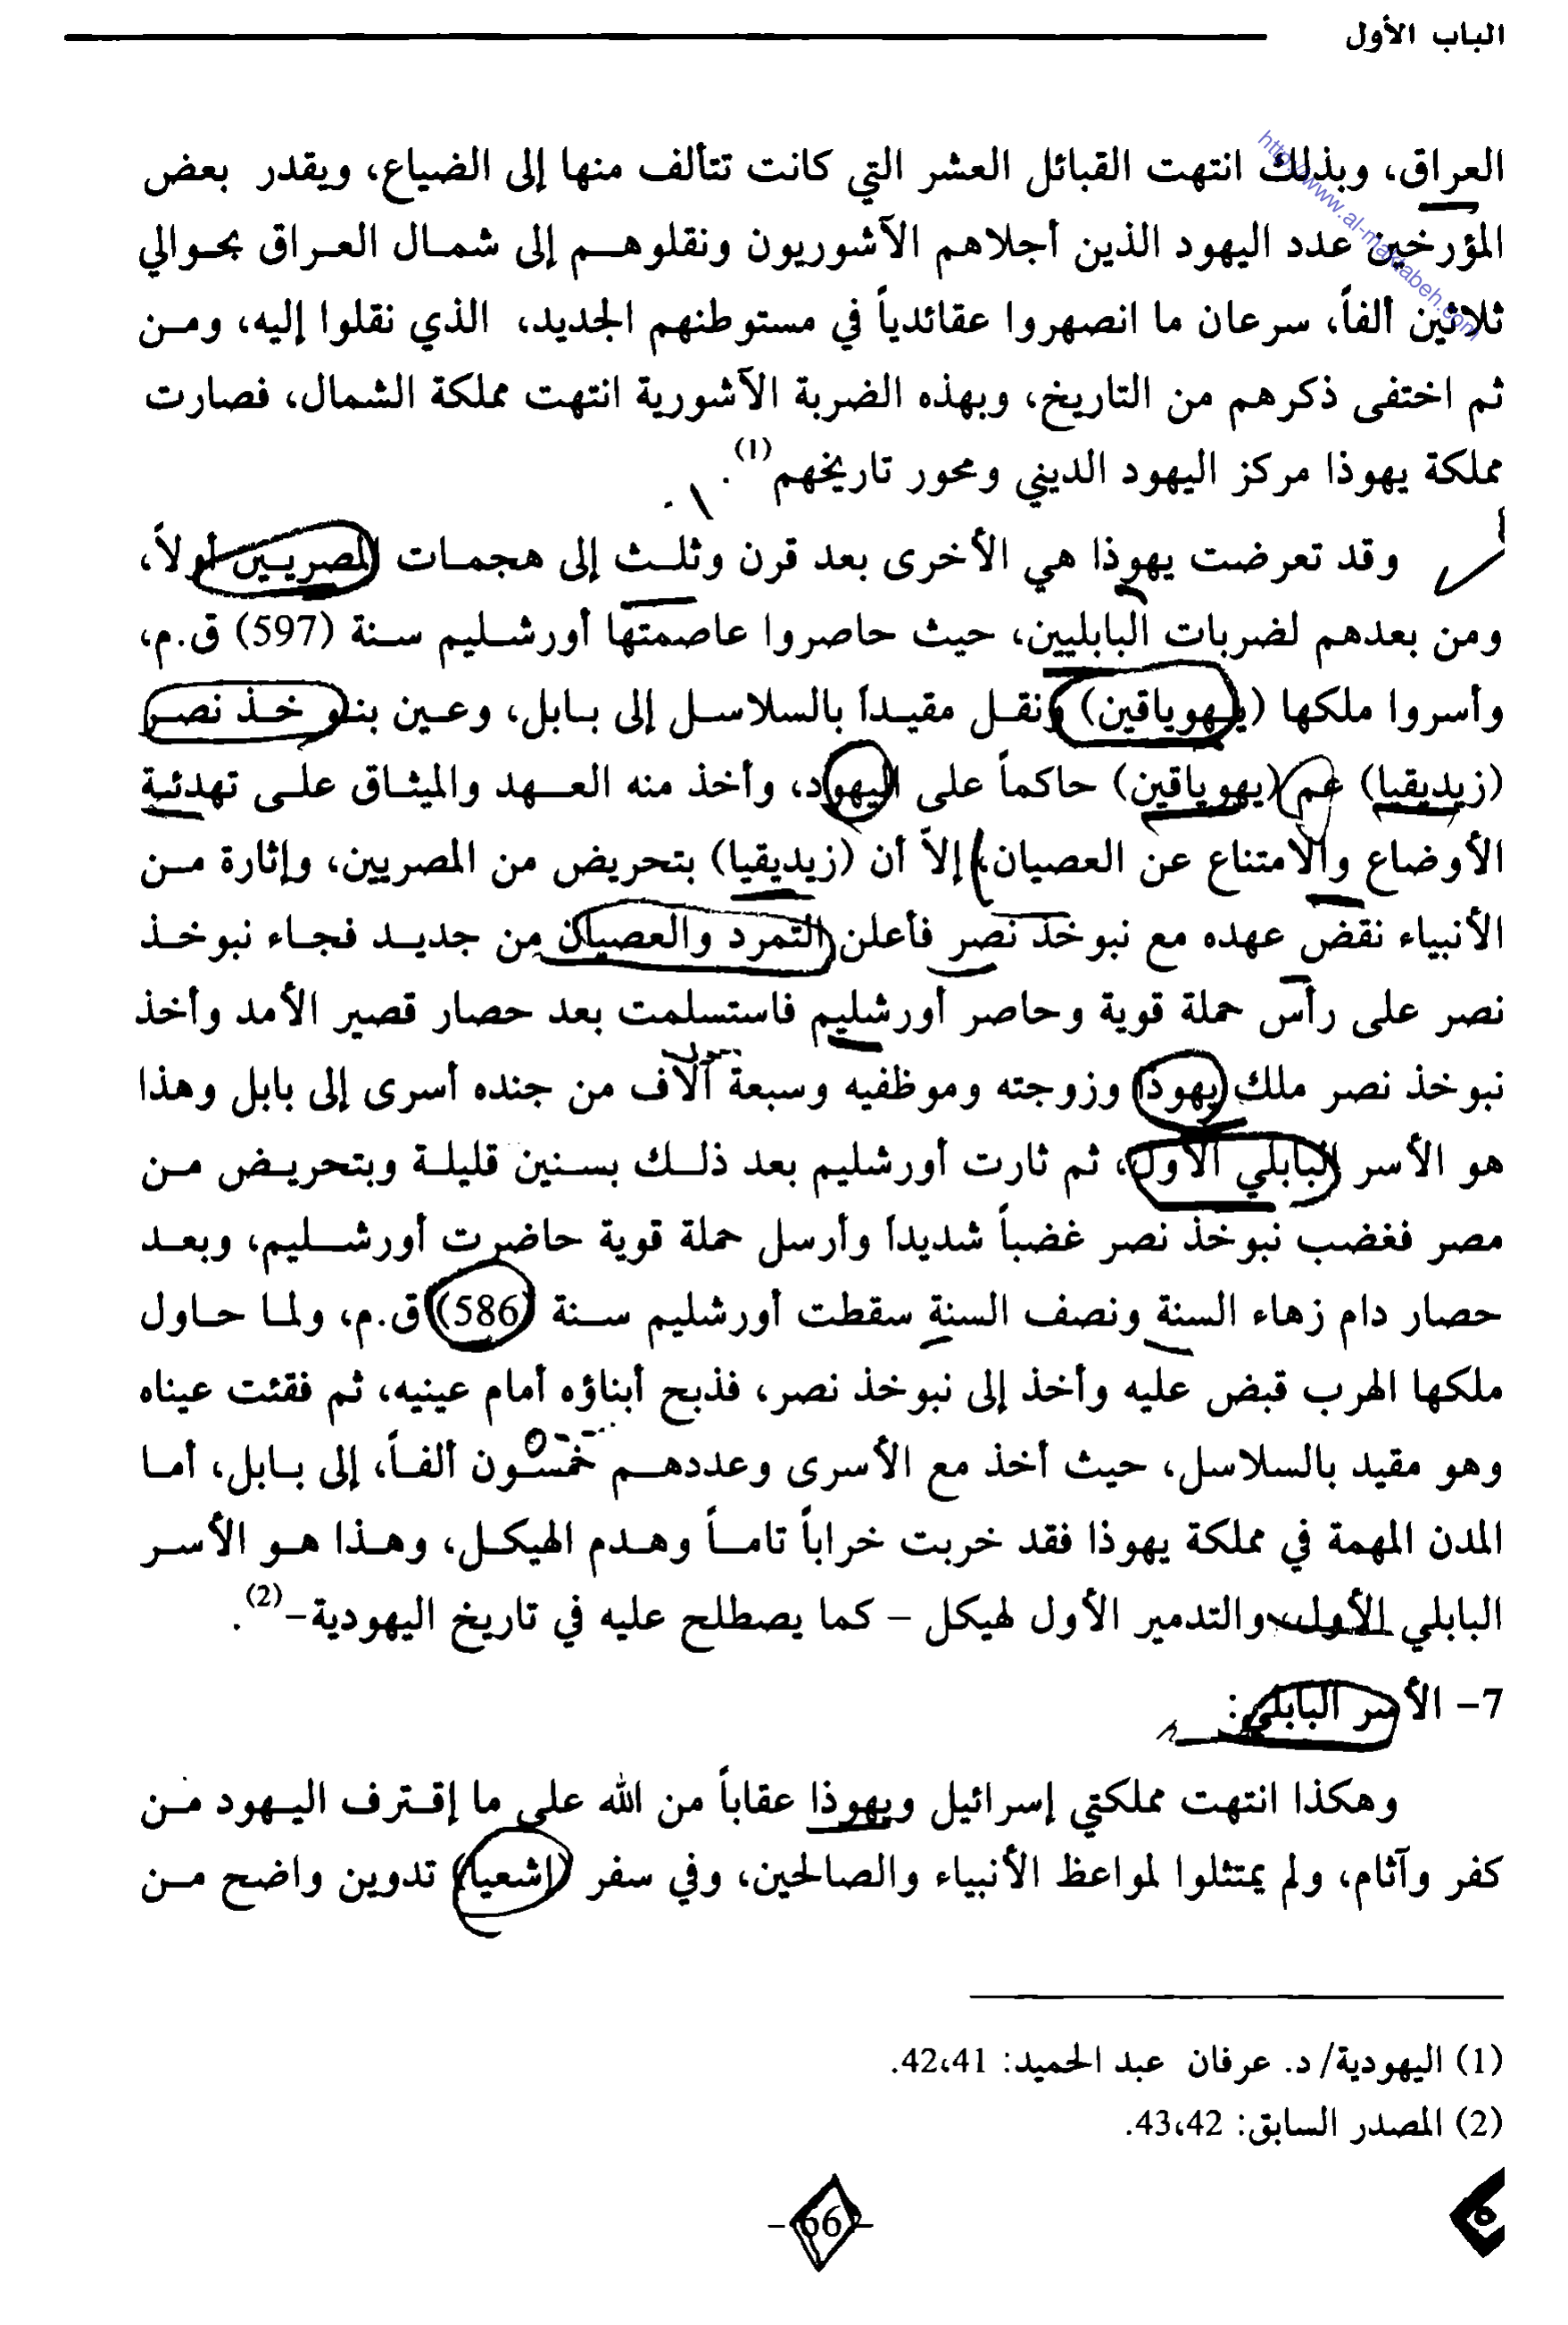 الباب الأول
http://www.al-maktabeh.com
العراق، وبذلك انتهت القبائل العشر التي كانت تتألف منها إلى الضياع، ويقدر بعض
المؤرخين عدد اليهود الذين أجلاهم الآشوريون ونقلوهم إلى شمال العراق بحوالي
ثلاثين ألفاً، سرعان ما انصهروا عقائدياً في مستوطنهم الجديد، الذي نقلوا إليه، ومن
ثم اختفى ذكرهم من التاريخ، وبهذه الضربة الآشورية انتهت مملكة الشمال، فصارت
مملكة يهوذا مركز اليهود الديني ومحور تاريخهم(1).
وقد تعرضت يهوذا هي الأخرى بعد قرن وثلث إلى هجمات المصريين أولاً،
ومن بعدهم لضربات البابليين، حيث حاصروا عاصمتها أورشليم سنة (597) ق.م،
وأسروا ملكها (يهوياقين) ونقل مقيداً بالسلاسل إلى بابل، وعين بنو خذ نصر
(زيديقيا) عم (يهوياقين) حاكماً على اليهود، وأخذ منه العهد والميثاق على تهدئة
الأوضاع والامتناع عن العصيان، إلاّ أن (زيديقيا) بتحريض من المصريين، وإثارة من
الأنبياء نقض عهده مع نبوخذ نصر فأعلن التمرد والعصيان من جديد فجاء نبوخذ
نصر على رأس حملة قوية وحاصر أورشليم فاستسلمت بعد حصار قصير الأمد وأخذ
نبوخذ نصر ملك يهوذا وزوجته وموظفيه وسبعة آلاف من جنده أسرى إلى بابل وهذا
هو الأسر البابلي الأول، ثم ثارت أورشليم بعد ذلك بسنين قليلة وبتحريض من
مصر فغضب نبوخذ نصر غضباً شديداً وأرسل حملة قوية حاضرت أورشليم، وبعد
حصار دام زهاء السنة ونصف السنة سقطت أورشليم سنة (586) ق.م، ولما حاول
ملكها الهرب قبض عليه وأخذ إلى نبوخذ نصر، فذبح أبناؤه أمام عينيه، ثم فقئت عيناه
وهو مقيد بالسلاسل، حيث أخذ مع الأسرى وعددهم خمسون ألفاً، إلى بابل، أما
المدن المهمة في مملكة يهوذا فقد خربت خراباً تاماً وهدم الهيكل، وهذا هو الأسر
البابلي الأول والتدمير الأول لهيكل – كما يصطلح عليه في تاريخ اليهودية–(2).
7– الأسر البابلي:
وهكذا انتهت مملكتي إسرائيل ويهوذا عقاباً من الله على ما إقترف اليهود من
كفر وآثام، ولم يمتثلوا لمواعظ الأنبياء والصالحين، وفي سفر (إشعيا) تدوين واضح من
(1) اليهودية/ د. عرفان عبد الحميد: 42،41.
(2) المصدر السابق: 43،42.
– 66 –